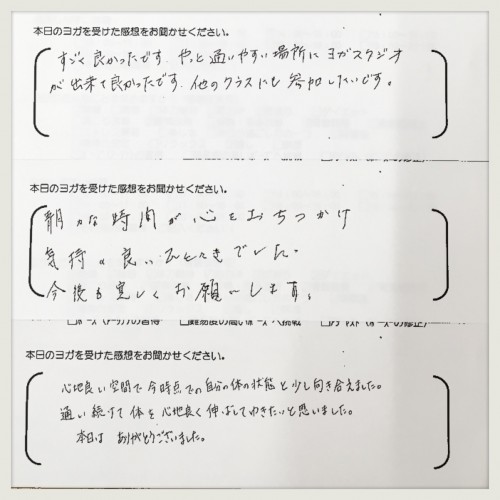 本日のヨガを受けた感想をお聞かせください。
すごく良かったです。やっと通いやすい場所にヨガスタジオ
が出来て良かったです。他のクラスにも参加したいです。
本日のヨガを受けた感想をお聞かせください。
静かな時間が心をおちつかけ
気持の良いひとときでした。
今後も宜しくお願いします。
本日のヨガを受けた感想をお聞かせください。
心地良い空間で今時点での自分の体の状態と少し向き合えました。
通い続けて体を心地良く伸ばしてゆきたいと思いました。
本日は ありがとうございました。